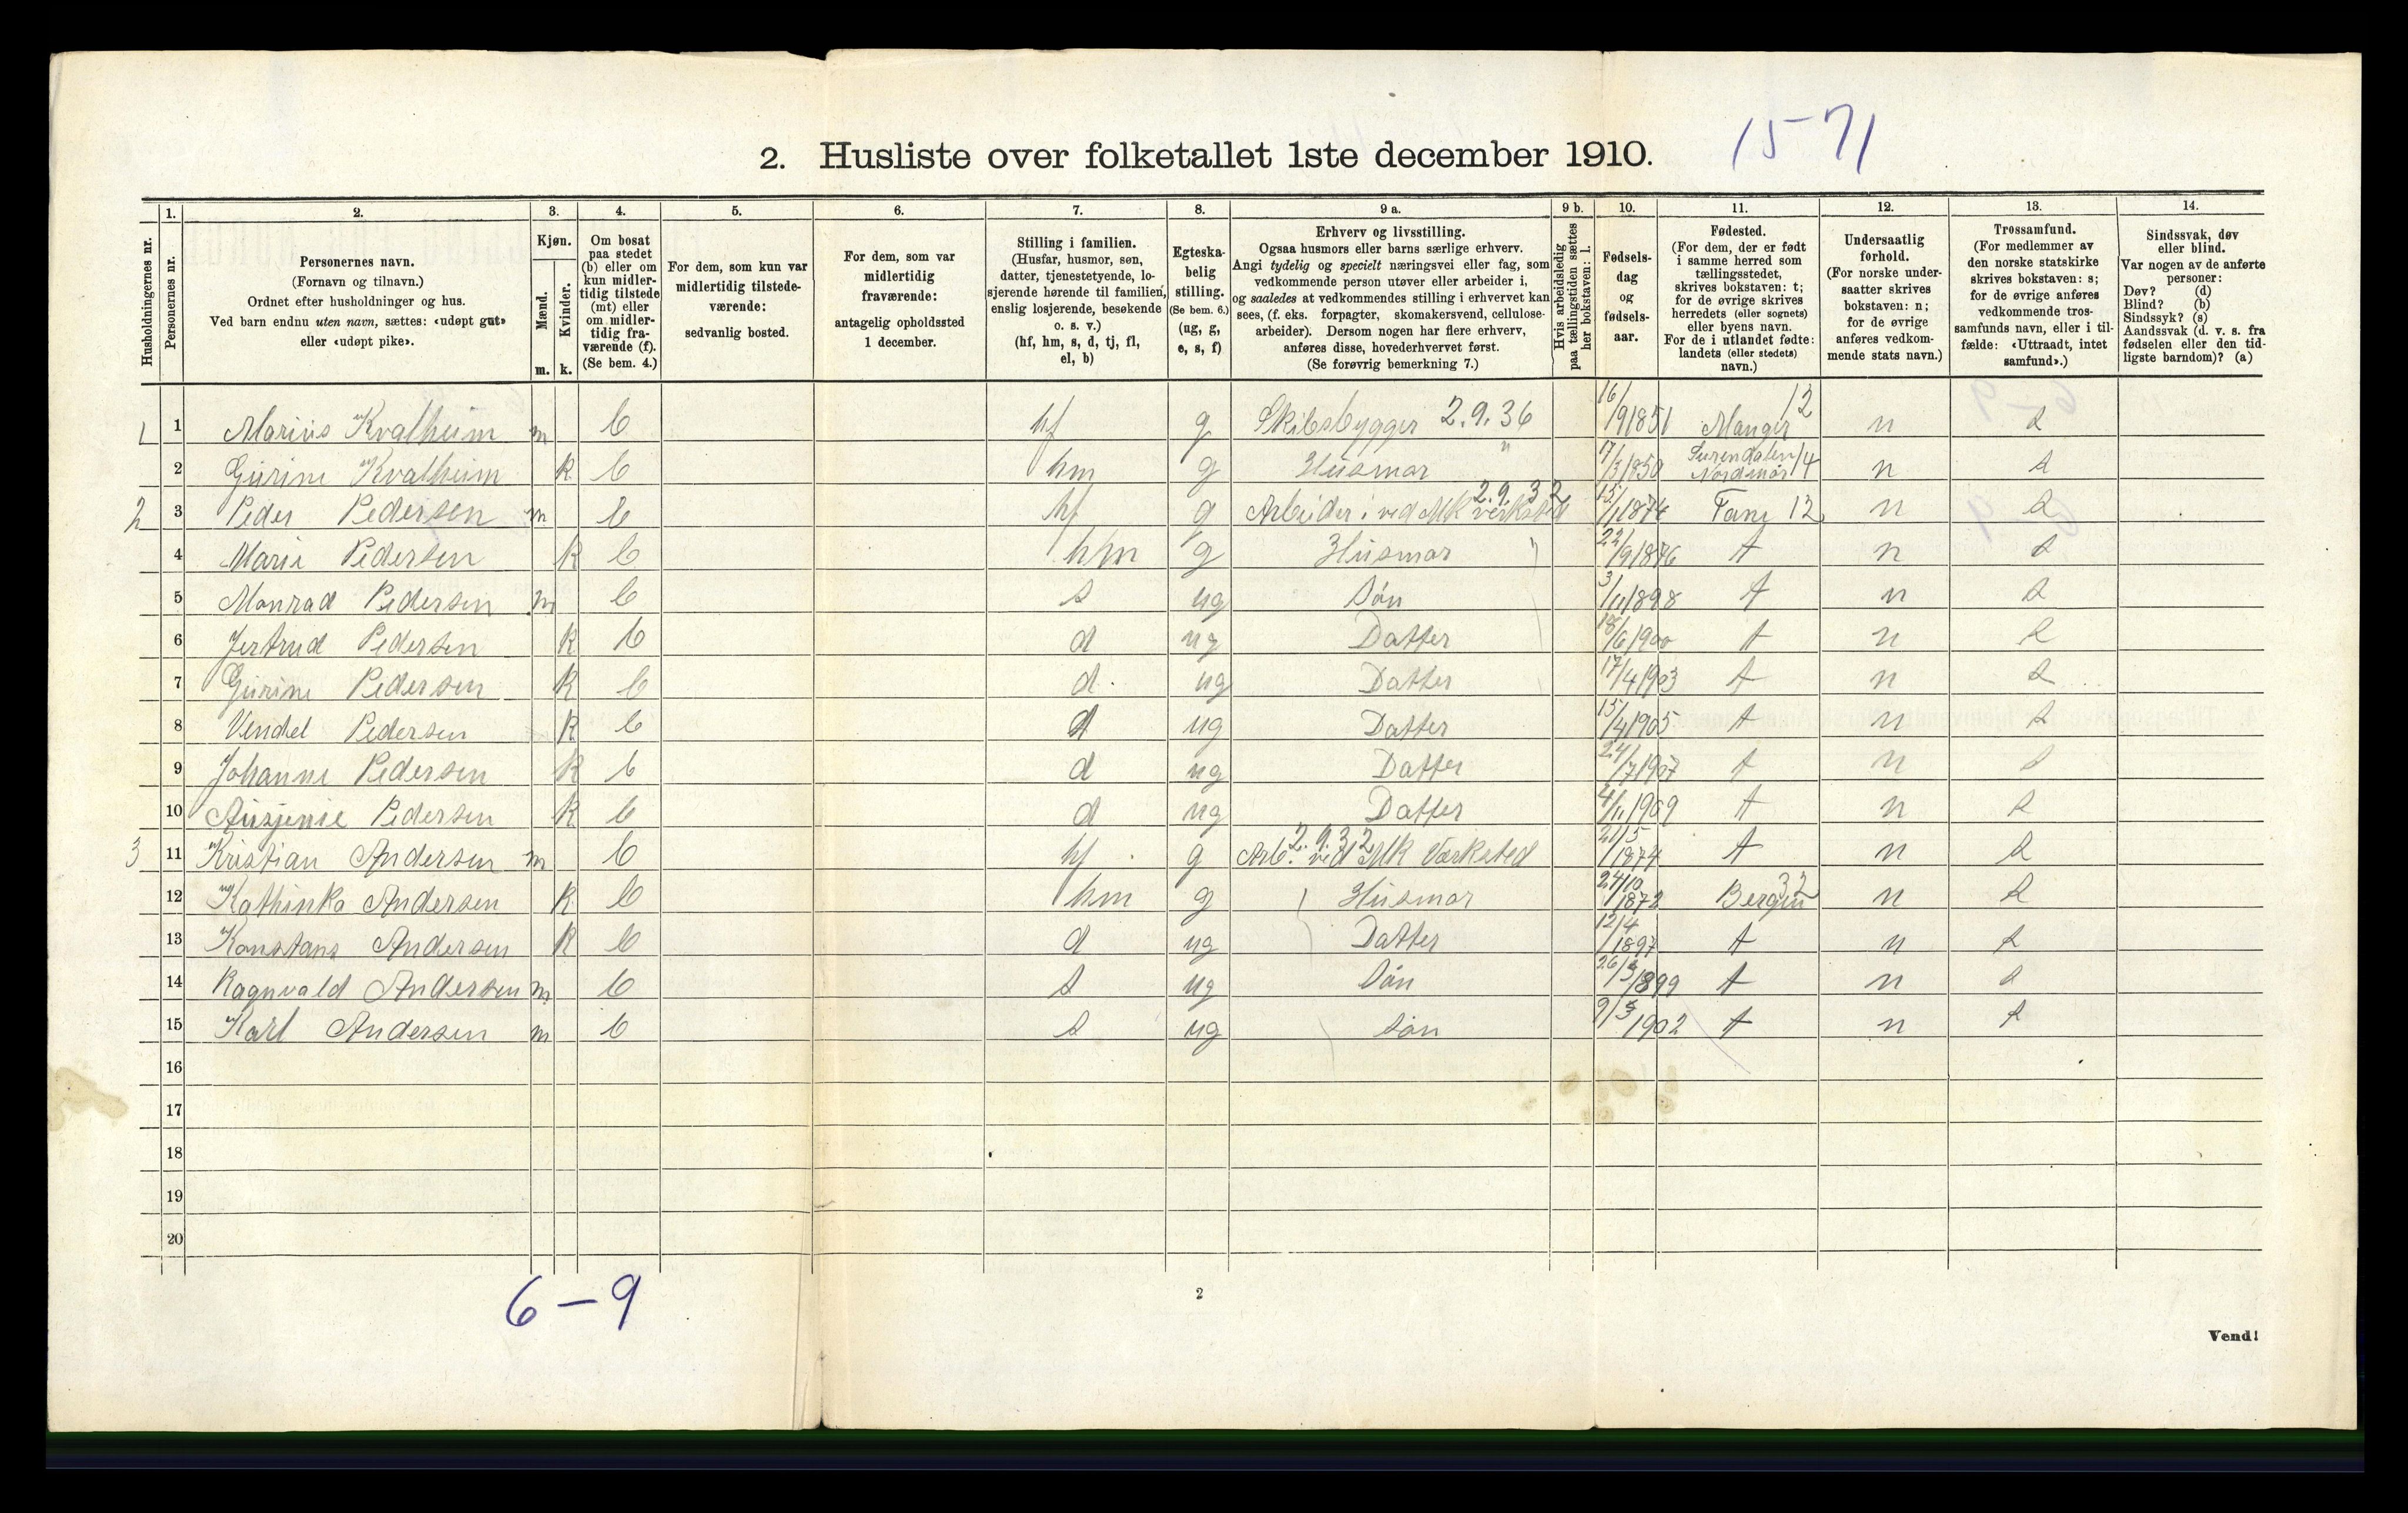 15-71
2. Husliste over folketallet 1ste december 1910.
Husholdningernes nr.
1. Personernes nr.
2. Personernes navn.
(Fornavn og tilnavn.)
Ordnet efter husholdninger og hus.
Ved barn endnu uten navn, sættes: «udøpt gut»
eller «udøpt pike».
3. Kjøn.
Mænd. m.
Kvinder. k.
4. Om bosat
paa stedet
(b) eller om
kun midler-
tidig tilstede
(mt) eller
om midler-
tidig fra-
værende (f).
(Se bem. 4.)
5. For dem, som kun var
midlertidig tilstede-
værende:
sedvanlig bosted.
6. For dem, som var
midlertidig
fraværende:
antagelig opholdssted
1 december.
7. Stilling i familien.
(Husfar, husmor, søn,
datter, tjenestetyende, lo-
sjerende hørende til familien,
enslig losjerende, besøkende
o. s. v.)
(hf, hm, s, d, tj, fl,
el, b)
8. Egteska-
belig
stilling.
(Se bem. 6.)
(ug, g,
e, s, f)
9 a. Erhverv og livsstilling.
Ogsaa husmors eller barns særlige erhverv.
Angi tydelig og specielt næringsvei eller fag, som
vedkommende person utøver eller arbeider i,
og saaledes at vedkommendes stilling i erhvervet kan
sees, (f. eks. forpagter, skomakersvend, cellulose-
arbeider). Dersom nogen har flere erhverv,
anføres disse, hovederhvervet først.
(Se forøvrig bemerkning 7.)
9 b. Hvis arbeidsledig
paa tællingstiden sættes
her bokstaven: l.
10. Fødsels-
dag
og
fødsels-
aar.
11. Fødested.
(For dem, der er født
i samme herred som
tællingsstedet,
skrives bokstaven: t;
for de øvrige skrives
herredets (eller sognets)
eller byens navn.
For de i utlandet fødte:
landets (eller stedets)
navn.)
12. Undersaatlig
forhold.
(For norske under-
saatter skrives
bokstaven: n;
for de øvrige
anføres vedkom-
mende stats navn.)
13. Trossamfund.
(For medlemmer av
den norske statskirke
skrives bokstaven: s;
for de øvrige anføres
vedkommende tros-
samfunds navn, eller i til-
fælde: «Uttraadt, intet
samfund».)
14. Sindssvak, døv
eller blind.
Var nogen av de anførte
personer:
Døv? (d)
Blind? (b)
Sindssyk? (s)
Aandssvak (d. v. s. fra
fødselen eller den tid-
ligste barndom)? (a)
1 1 Marius Kvalheim m b hf g Skibsbygger 2.9.36 16/9 1851 Manger 12 n s
2 Gurine Kvalheim k b hm g Husmor " 17/3 1850 Surendalen Nordmør 14 n s
2 3 Peder Pedersen m b hf g Arbeider i ved MK verksted 2.9.32 15/1 1874 Fane 12 n s
4 Marie Pedersen k b hm g Husmor " 22/9 1876 t n s
5 Monrad Pedersen m b s ug Søn 3/11 1898 t n s
6 Jertrud Pedersen k b d ug Datter 18/6 1900 t n s
7 Gurine Pedersen k b d ug Datter 17/4 1903 t n s
8 Vendel Pedersen k b d ug Datter 15/4 1905 t n s
9 Johanne Pedersen k b d ug Datter 24/7 1907 t n s
10 Pedersen k b d ug Datter 4/11 1909 t n s
3 11 Kristian Andersen m b hf g Arb. ved MK Værksted 2.9.32 21/5 1874 t n s
12 Kathinka Andersen k b hm g Husmor 24/10 1872 Bergen 32 n s
13 Konstans Andersen k b d ug Datter 12/4 1897 t n s
14 Ragnvald Andersen m b s ug Søn 26/3 1899 t n s
15 Karl Andersen m b s ug Søn 9/3 1902 t n s
16
17
18
19
20
6-9
2
Vend!